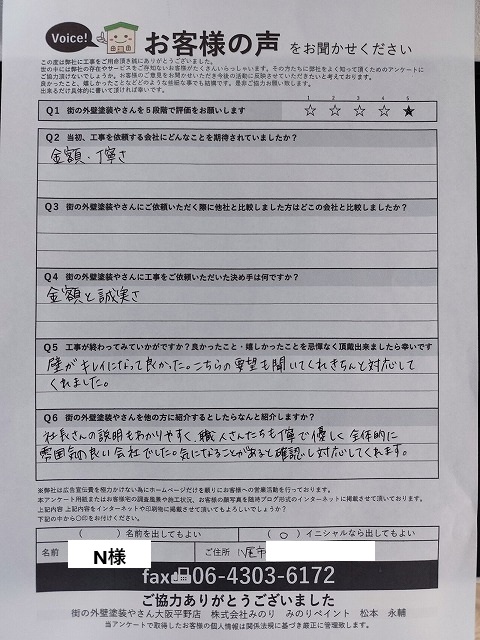 Voice!
お客様の声 をお聞かせください
この度は弊社に工事をご用命頂き誠にありがとうございました。
世の中には弊社の存在やサービスをご存知ないお客様がたくさんいらっしゃいます。その方たちに弊社をよく知って頂くためのアンケートに
ご協力頂けないでしょうか。お客様のご意見をお聞かせいただき今後の活動に反映させていただきたいと考えております。
良かったこと、嬉しかったことなどどのような些細な事でも結構です。是非ご協力お願い致します。
出来るだけ具体的に書いて頂ければ幸いです。
1 2 3 4 5
Q1 街の外壁塗装やさんを5段階で評価をお願いします ☆ ☆ ☆ ☆ ★
Q2 当初、工事を依頼する会社にどんなことを期待されていましたか?
金額・丁寧さ
Q3 街の外壁塗装やさんにご依頼いただく際に他社と比較しました方はどこの会社と比較しましたか?
Q4 街の外壁塗装やさんに工事をご依頼いただいた決め手は何ですか?
金額と誠実さ
Q5 工事が終わってみていかがですか?良かったこと・嬉しかったことを忌憚なく頂戴出来ましたら幸いです
壁がキレイになって良かった。こちらの要望も聞いてくれきちんと対応して
くれました。
Q6 街の外壁塗装やさんを他の方に紹介するとしたらなんと紹介しますか?
社長さんの説明もわかりやすく、職人さんたちも丁寧で優しく全体的に
雰囲気の良い会社でした。気になることがあると確認し対応してくれます。
※弊社は広告宣伝費を極力かけない為にホームページだけを頼りにお客様への営業活動を行っております。
本アンケート用紙またはお客様宅の調査風景や施工状況、お客様の顔写真を随時ブログ形式のインターネットに掲載させて頂いております。
上記内容 上記内容をインターネットや印刷物に掲載させて頂いてもよろしいでしょうか?
下記の中から○印をお付けください。
( ) 名前を出してもよい ( ○ ) イニシャルなら出してもよい
名前 N様 ご住所 八尾市
fax 06-4303-6172
ご協力ありがとうございました
街の外壁塗装やさん大阪平野店 株式会社みのり みのりペイント 松本 永輔
当アンケートで取得したお客様の個人情報は関係法規に基づき厳正に管理致します。